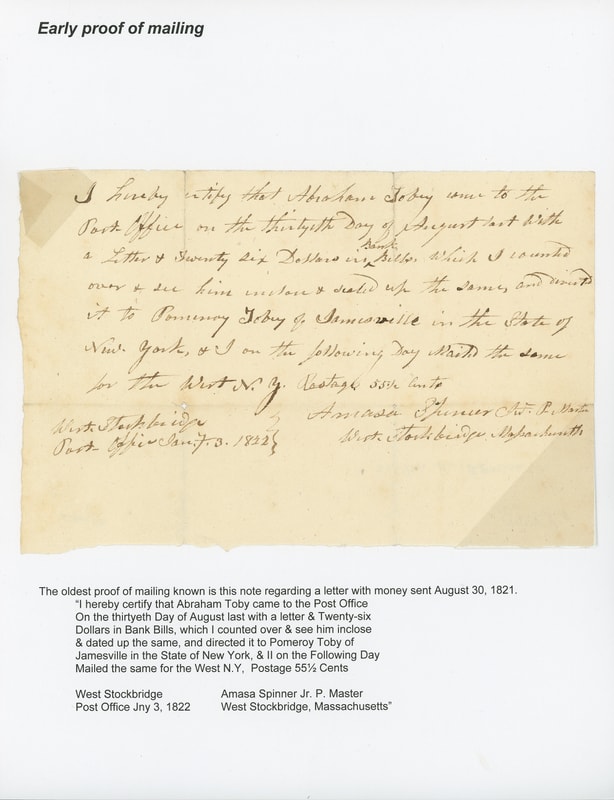 Early proof of mailing
I hereby certify that Abraham Tobey came to the
Post Office on the thirtyeth Day of August last With
a Letter & Twenty six Dollars in Bank Bills. Which I counted
over & see him inclose & sealed up the same, and directed
it to Pomeroy Tobey of Jamesville in the State of
New. York, & I on the following Day Maild the same
for the West N.Y. Postage 55½ Cents
Amasa Spencer Jur. P. Master
West. Stockbridge
West. Stockbridge Massachusetts
Post- Office Jany. 3. 1822
The oldest proof of mailing known is this note regarding a letter with money sent August 30, 1821.
“I hereby certify that Abraham Toby came to the Post Office
On the thirtyeth Day of August last with a letter & Twenty-six
Dollars in Bank Bills, which I counted over & see him inclose
& dated up the same, and directed it to Pomeroy Toby of
Jamesville in the State of New York, & II on the Following Day
Mailed the same for the West N.Y, Postage 55½ Cents
West Stockbridge Amasa Spinner Jr. P. Master
Post Office Jny 3, 1822 West Stockbridge, Massachusetts”